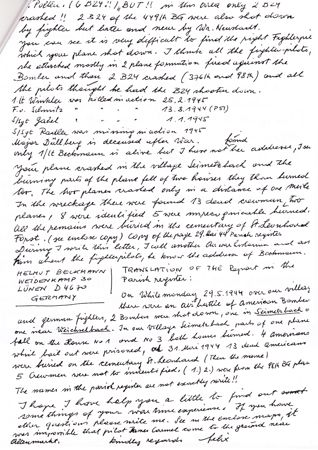 Potler. (6 B24!!), BUT!! in this area only 2 B24
crashed!! 2 B24 of the 449th BG were also shot down
by fighter but later and near by Wr. Neustadt.
You can see it's very difficult to find the right Fighterpilot
which your plane shot down. I think all the fighterpilots,
she attached mostly in 2 plane formation fired against the
Bomber and then 2 B24 crashed (376th and 98th) and all
the pilots thought he had the B24 shooten down.
1 Lt Winkler was killed in action 25.2.1945
F.v. 13.8.1944
S/Sgt Gabel " 1.1.1945
S/Sgt was missing in action 1945
Major Düllberg is deceased after War.
only 1/Lt Beckmann is alive but I have not her address, I see
Your plane crashed in the village Seimetsbach and the
burning parts of the plane fell of two houses they then burned
too. The two planes crashed only in a distance of one
In the wreckage there were found 13 dead crewmen, two
planes, 8 were identified 5 were burned.
All the remains were buried in the cementary of
Forst. (see enclose copy) Copy of the page 29 Parish register
During I write this letter, I call another Am
him about the fighterpilots, he know the address of Beckmann.
HELMUT BECKMANN
WEIDENKAMP 30
LÜNEN D4670
GERMANY
TRANSLATION OF the Report in the
Parish register:
On White monday 29.5.1944 over our village
there were an air battle of American Bomber
and german fighters, 2 Bombers were shot down, one in Seimetsbach
one near In our village Seimetsbach parts of one plane
fall on the House No 1 and No 3 both house burned. 4 Americans
which bail out were prisoned, 31. Juni 1944 13 dead Americans
were buried on the cementary St. Leonhard (Then the name)
5 Crewmen were not to identified. (1.) (2.) was from the 98th BG plane
The names in the parish register are not exactly write!!
I hope I have help you a little to find out
some things of your war time experience. If you have
other questions please write me. See in the enclose maps, it
was impossible that pilot came to the ground near
Altenmarkt. Kindly regards Felix